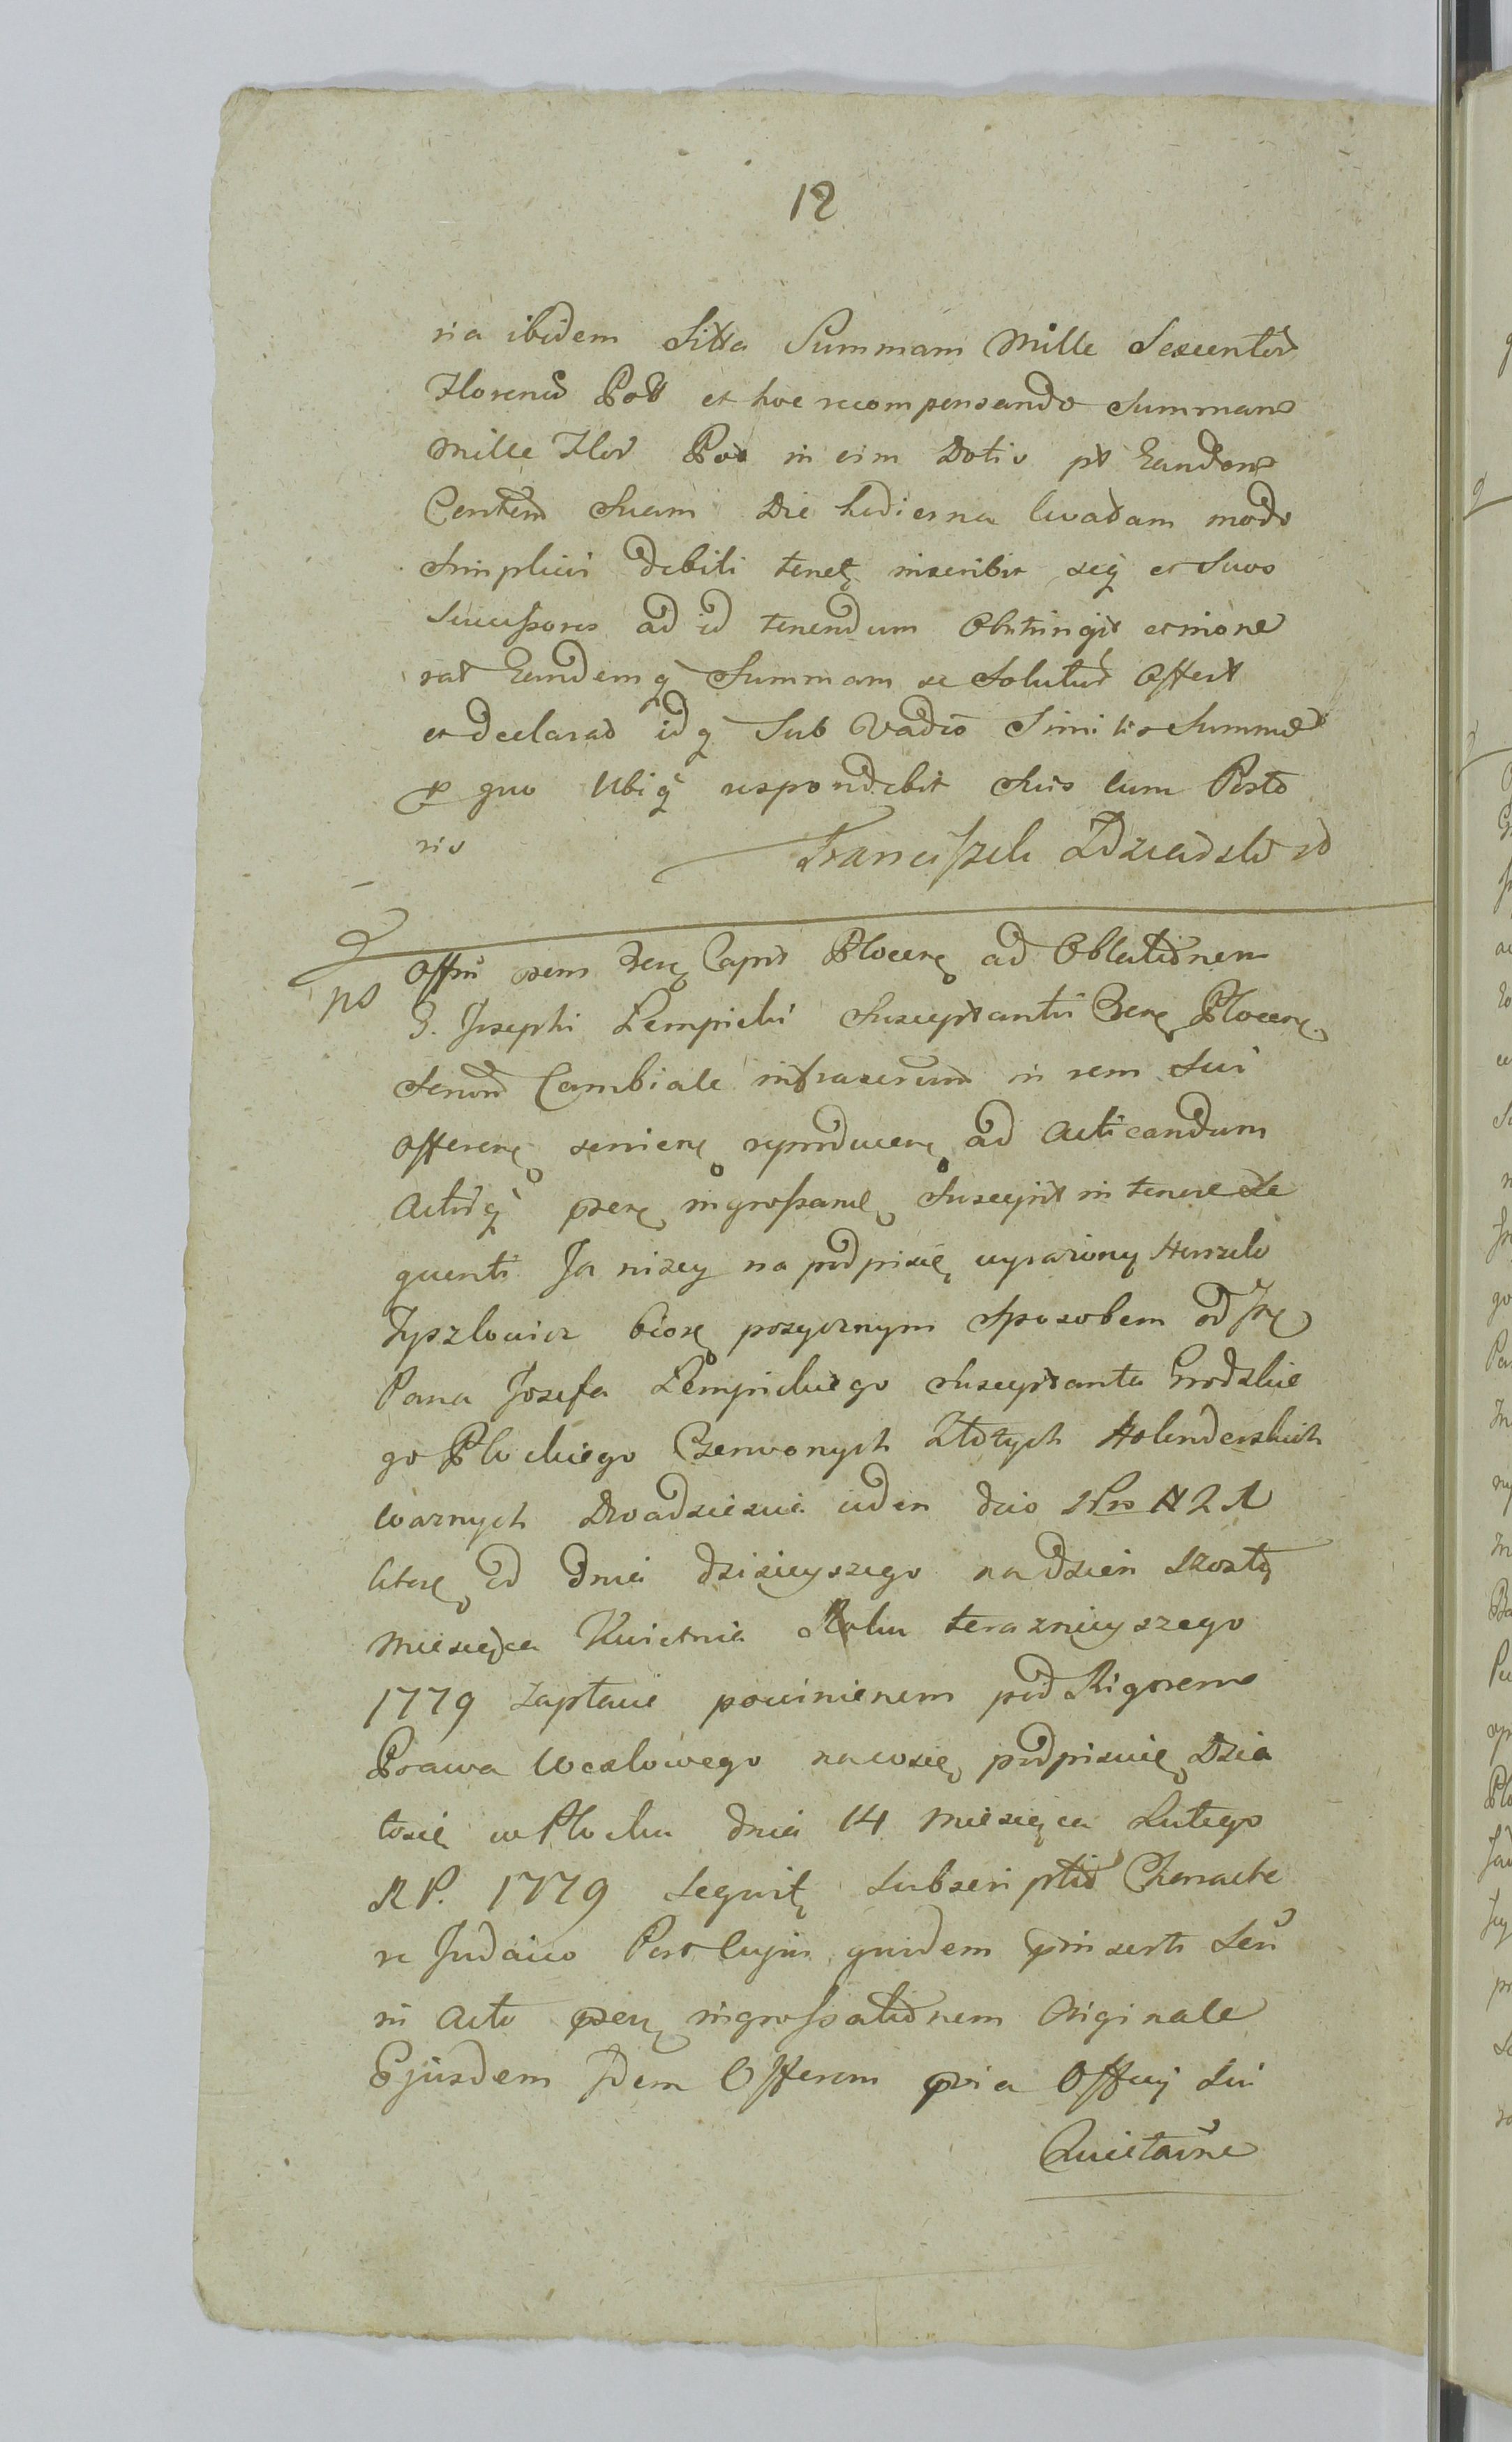 12
ria ibidem Sitta Summam Mille Sexcentor
Floreno Poll et hoc recompensando Summam
Mille Flor Pol in eim Dotis pt Eandem
Contem Suam Die hodierna levadam modo
Simplicis debiti tenet inscribit seq et Suos
Successores ad id tenendum Obstringit et inone
rat Eandemq Summam se Solutur Offert
et declarat idq Sub Vadio Similis Summæ
p quo Ubiq respondebit Suis cum Posto
ris
Franciszek Zdziarski
ps
Offm psens Xcnę Capit Plocenę ad Oblationem
G. Josephi Lempicki Susceptantis Xcnę Plocenę
Scrum Cambiale infrascrum in rem Sui
Offerenę senienę reproducenę ad acticandum
Actisq psenę ingrossanę Suscepit in tenore Se
quenti Ja niżey na podpisię wyrażony Herszko
Zyszkowicz biorę pożycznym Sposobem od Jm
Pana Jozefa Lempickiego Susceptanta Grodzkie
go Płockiego Czerwonych Złotych Holenderskich
ważnych Dwadziescia ieden dico N 21
ktorę od dnia dzisieyszego na dzień Szosty
Miesięca Kwietnia Roku teraznieyszego
1779 zapłacic powinienem pod Rigorem
Prawa Wexlowego na co się podpisuię Dzia
łosię w Płocku dnia 14 Miesięca Lutego
R P. 1779 Sequitę Subscriptio Characte
re Judaico Post cujus quidem pinserti Scri
in Acta psenę ingrossationem Originale
Ejusdem Idem Offerens pria Offiuj Sui
Quietaõne